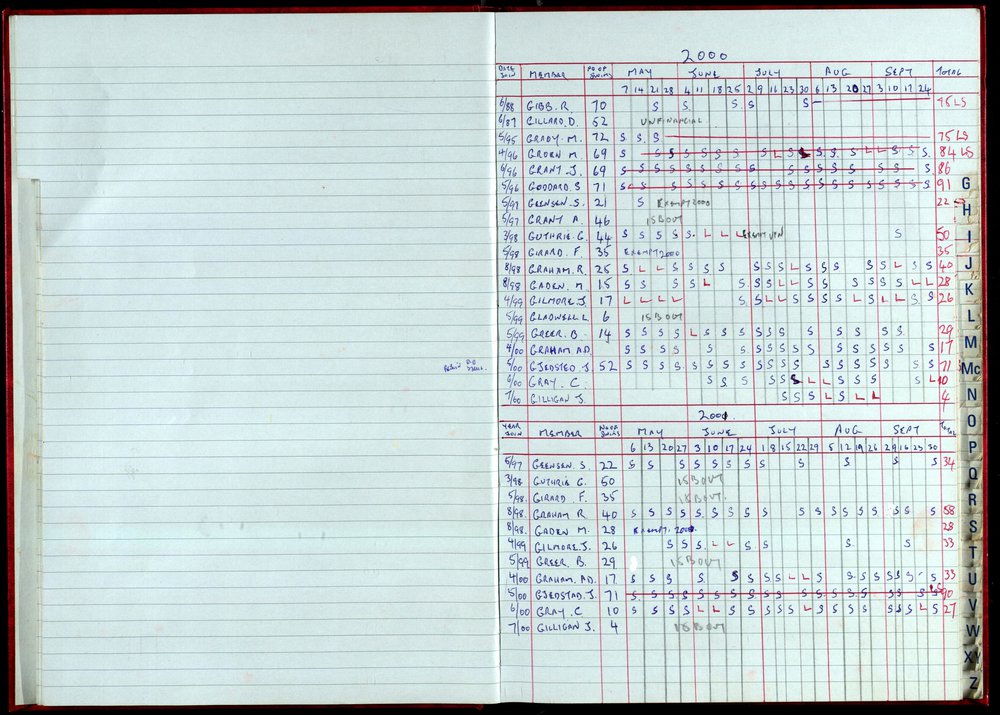 2000
DATE JOIN MEMBER NO OF SWIMS MAY JUNE JULY AUG SEPT TOTAL
7 14 21 28 4 11 18 25 2 9 16 23 30 6 13 20 27 3 10 17 24
6/88 GIBB. R. 70 S S S S S 75 LS
6/87 GILLARD. D. 52 UNFINANCIAL
5/95 GRADY. M. 72 S S S 75 LS
4/96 GRDEN M. 69 84 LS
6/96 GRANT. J. 69 86
5/96 GODDARD. S 71 91
5/97 GEENSEN. S. 21 S EXEMPT 2000 22
5/97 GRANT A. 46 ISBOUT
3/98 GUTHRIE G. 44 S S S S S L L L S 50
5/98 GIRARD. F. 35 EXEMPT 2000 35
8/98 GRAHAM. R. 25 S L L S S S S S S S L S S S S S L S S 40
8/98 GADEN. M. 15 28
4/99 GILMORE. J. 17 L L L L S S L L S S S S L S L L S S 26
5/99 GLADWELL L 6 ISBOUT
5/99 GREER. B. 14 S S S S L S S S S S S S S S S S 29
4/00 GRAHAM A.D. S S S S S S S S S S S S S S S S S 17
5/00 GJEDSTED. J. 52 71
6/00 GRAY. C. 10
7/00 GILLIGAN J. S S S L S L L 4
2001.
YEAR JOIN MEMBER NO OF SWIMS MAY JUNE JULY AUG SEPT TOTAL
6 13 20 27 3 10 17 24 1 8 15 22 29 5 12 19 26 2 9 16 23 30
5/97 GEENSEN. S. 22 S S S S S S S S S S S S 34
3/98 GUTHRIE G. 50 ISBOUT
5/98 GIRARD. F. 35 ISBOUT.
8/98. GRAHAM R. 40 58
8/98. GADEN M. 28 EXEMPT. 2001. 28
4/99 GILMORE. J. 26 S S S L L S S S S 33
5/99 GREER. B. 29 ISBOUT
4/00 GRAHAM. A.D. 17 33
5/00 GJEDSTAD. J. 71 90
6/00 GRAY. C 10 27
7/00 GILLIGAN J. 4 ISBOUT
G
H
I
J
K
L
M
Mc
N
O
P
Q
R
S
T
U
V
W
X
Z